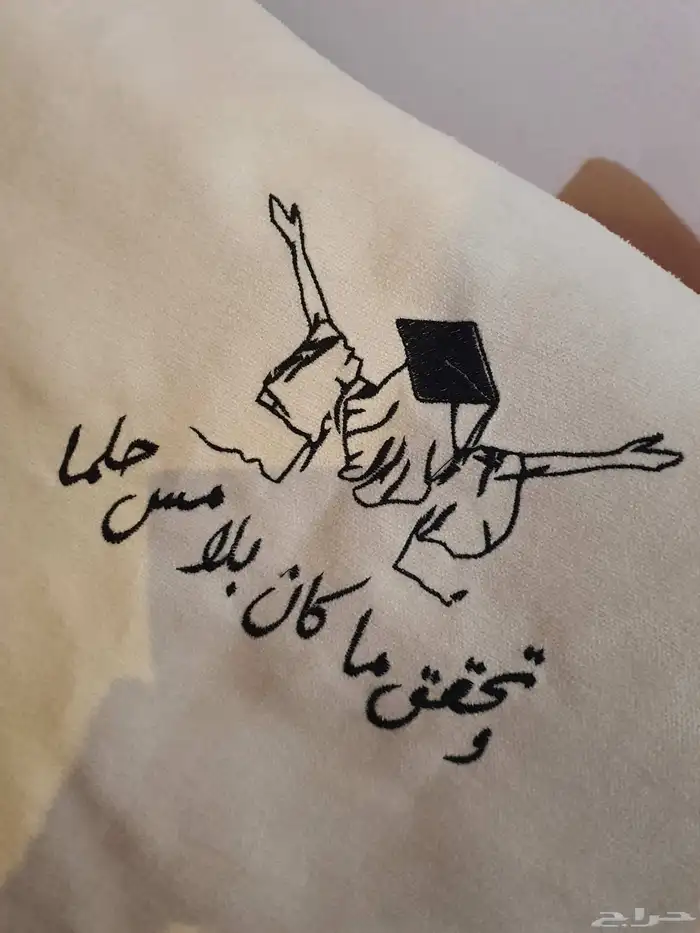 و تحقق ما كان بلامس حلما
حراج